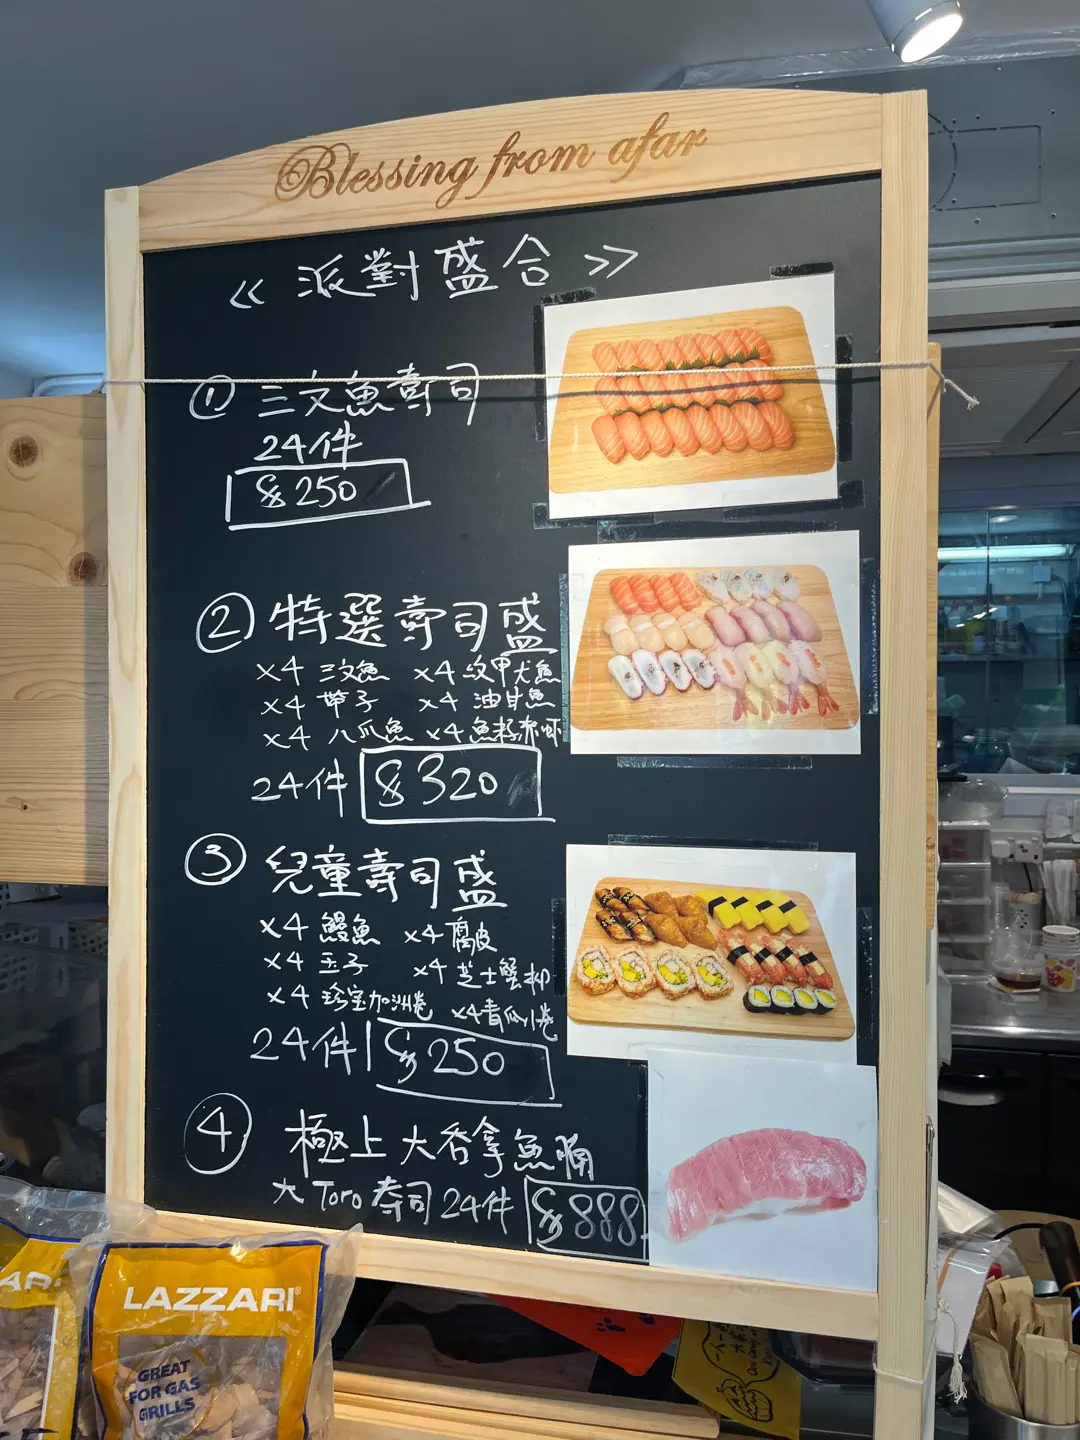 Blessing from afar
《 派對盛合 》
① 三文魚壽司
24件
$250
② 特選壽司盛
x4 三文魚 x4 紋甲犬魚
x4 帶子 x4 油甘魚
x4 八爪魚 x4 魚籽赤蝦
24件 $320
③ 兒童壽司盛
x4 鰻魚 x4 腐皮
x4 玉子 x4 芝士蟹柳
x4 珍宝加洲卷 x4 青瓜小卷
24件 $250
④ 極上大吞拿魚腩
大 Toro 壽司 24件 $888
LAZZARI
GREAT
FOR GAS
GRILLS